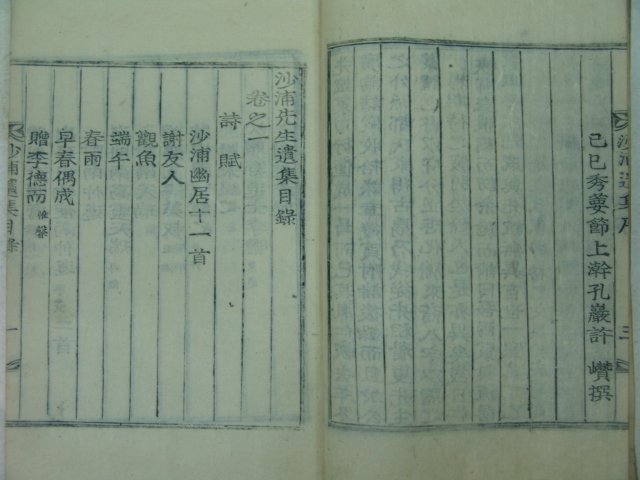 沙浦遺集序
三
己巳秀葽節上澣孔巖許 巑撰
沙浦先生遺集目錄
卷之一
詩賦
沙浦幽居十一首
謝友人
觀魚
端午
春雨
早春偶成
贈李德而惟馨
沙浦遺集目錄
一